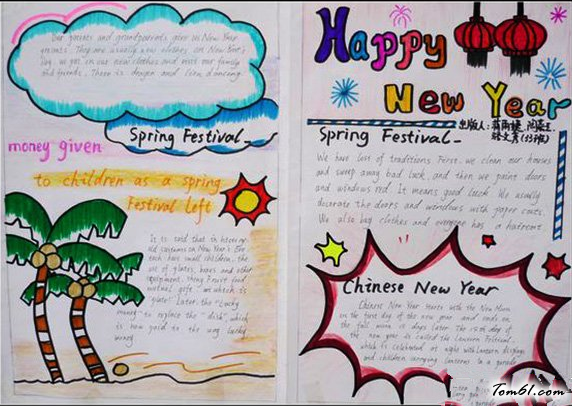 Our parents and grandparents give us New Year
presents. They are usually new clothes on New Year's
Day. we put on our new clothes and visit our family
and friends. There is dragon and lion dancing.
Spring Festival
money given
to children as a spring
Festival left
It is said that in
on New Year's Eve
each have small children, the
use of plates, boxes and other
equipment.
gift
"plate". Later, the "lucky
money" to replace the "dish", which
is now paid to the lucky
money
Happy
New Year
出版人:
Spring Festival
We have lost of traditions First. we clean our houses
and sweep away bad luck. and then we paint doors
and windows red. It means good luck. We usually
decorate the doors and windows with paper cuts.
We also buy clothes and everyone has a haircut.
Chinese New Year
Chinese New Year starts with the New Moon
on the first day of the new year and ends on
the full moon 15 days later. The 15th day of
the new year is called the Lantern Festival,
which is celebrated at night with lantern displays
and children carrying lanterns in a parade
Tom61.com